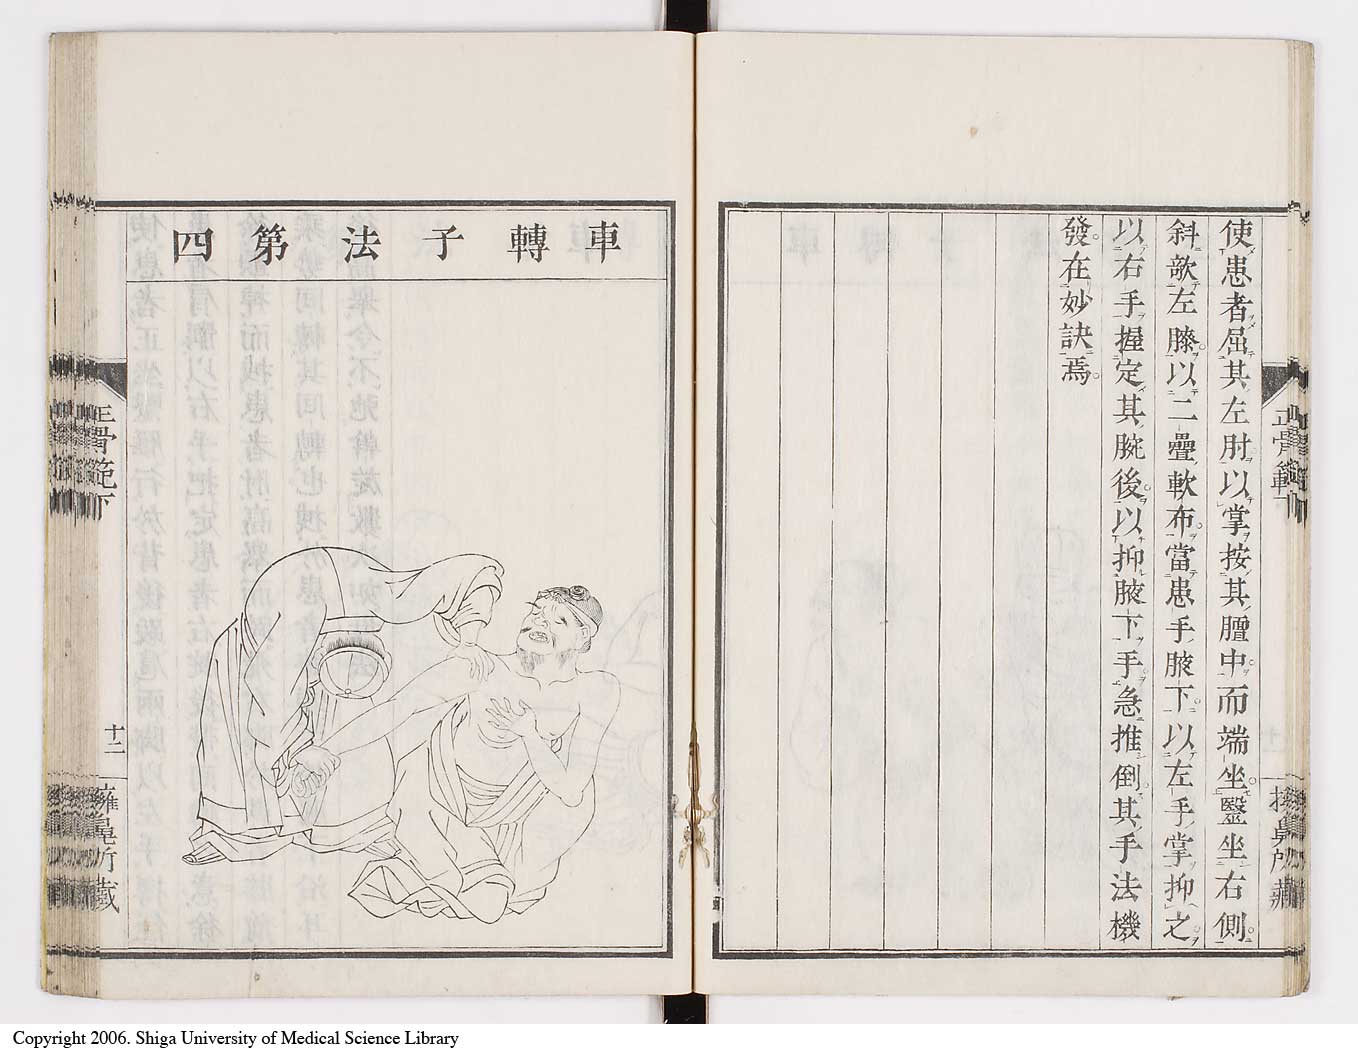 使患者屈其左肘以掌按其膻中而端坐毉坐右側
斜欹左膝以二疊軟布當患手腋下以左手掌抑之
以右手握定其腕後以抑腋下手急推倒其手法機
發在妙訣焉
正骨範下
車轉子法第四
正骨範下
十二
Copyright 2006. Shiga University of Medical Science Library